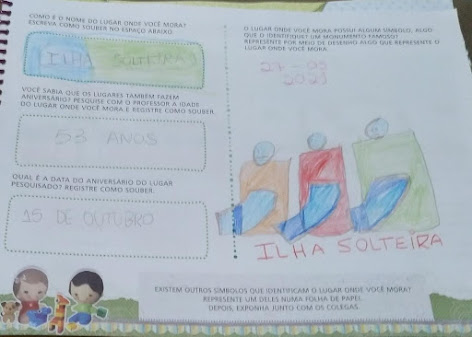 COMO É O NOME DO LUGAR ONDE VOCÊ MORA?
ESCREVA COMO SOUBER NO ESPAÇO ABAIXO.
ILHA SOLTEIRA
VOCÊ SABIA QUE OS LUGARES TAMBÉM FAZEM
ANIVERSÁRIO? PESQUISE COM O PROFESSOR A IDADE
DO LUGAR ONDE VOCÊ MORA E REGISTRE COMO SOUBER.
53 ANOS
QUAL É A DATA DO ANIVERSÁRIO DO LUGAR
PESQUISADO? REGISTRE COMO SOUBER.
15 DE OUTUBRO
O LUGAR ONDE VOCÊ MORA POSSUI ALGUM SÍMBOLO, ALGO
QUE O IDENTIFIQUE? UM MONUMENTO FAMOSO?
REPRESENTE POR MEIO DE DESENHO ALGO QUE REPRESENTE O
LUGAR ONDE VOCÊ MORA.
2021
ILHA SOLTEIRA
EXISTEM OUTROS SÍMBOLOS QUE IDENTIFICAM O LUGAR ONDE VOCÊ MORA?
REPRESENTE UM DELES NUMA FOLHA DE PAPEL.
DEPOIS, EXPONHA JUNTO COM OS COLEGAS.